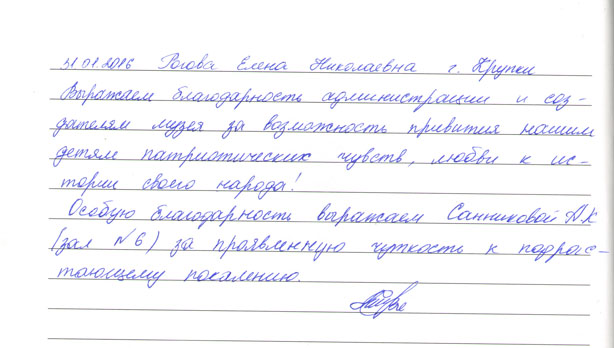 31.07.2016 Рогова Елена Николаевна г. Крупки
Выражаем благодарность администрации и соз-
дателям музея за возможность привития нашим
детям патриотических чувств, любви к ис-
тории своего народа!
Особую благодарность выражаем Санниковой А.К
(зал №6) за проявленную чуткость к подрас-
тающему поколению.